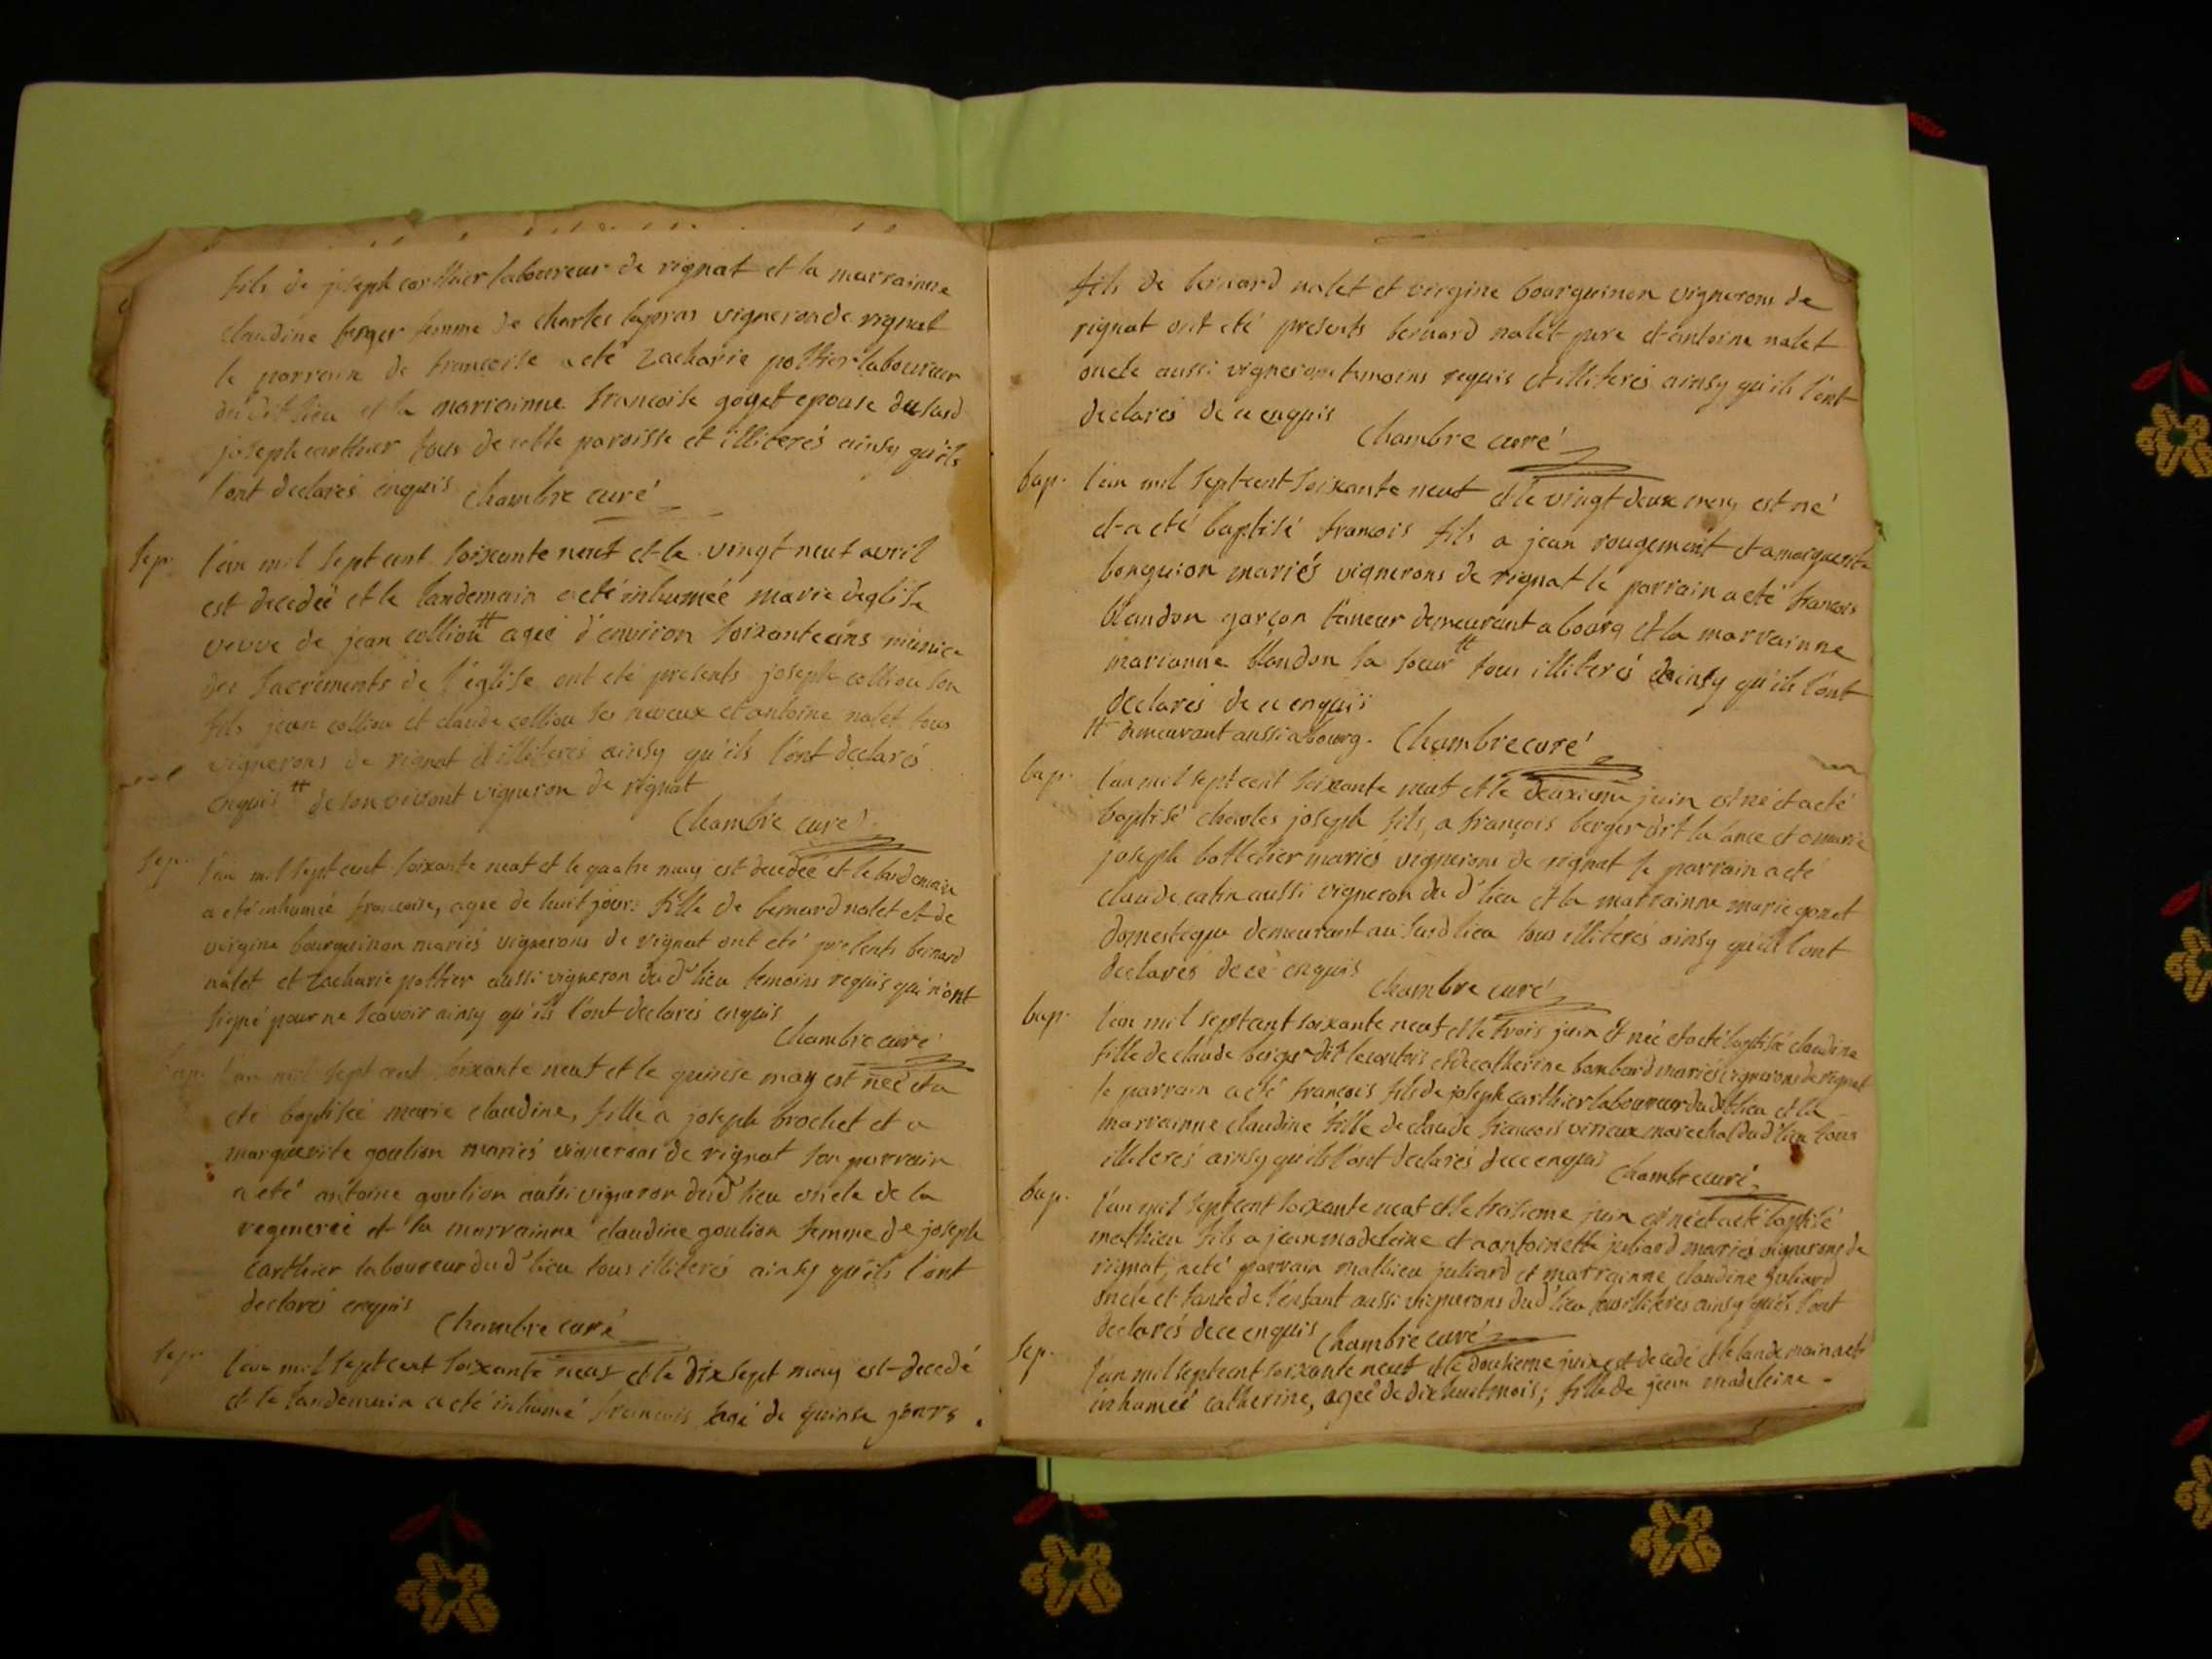 fils de joseph carthier laboureur de rignat et la marrainne
claudine berger femme de charles vigneron de rignat
le parrain de francoise a eté Zacharie pothier laboureur
dudit lieu et la marrainne francoise goyet epouse dususd
joseph carthier tous de cette paroisse et illiterés ainsy qu'ils
l'ont declarés enquis Chambre curé
sep. l'an mil sept cent soixante neuf et le vingt neuf avril
est decedée et le landemain a eté inhumée marie deglise
veuve de jean colliou tt agée d'environ soixante ans munie
des sacrements de l'eglise ont eté presents joseph colliou son
fils jean colliou et claude colliou ses neveux et antoine nalet tous
vignerons de rignat et illiterés ainsy qu'ils l'ont declarés
enquis tt de son vivant vigneron de rignat
Chambre curé
sep. l'an mil sept cent soixante neuf et le quatre may est decedée et le landemain
a eté inhumée francoise, agée de huit jours fille de bernard nalet et de
virgine bourguinon mariés vignerons de rignat ont eté presents bernard
nalet et Zacharie pothier aussi vigneron du d' lieu temoins requis qui n'ont
signé pour ne scavoir ainsy qu'ils l'ont declarés enquis
Chambre curé
bap. l'an mil sept cent soixante neuf et le quinse may est neé et a
eté baptisée marie claudine, fille a joseph brochet et a
marguerite goulion mariés vignerons de rignat son parrain
a eté antoine goulion aussi vigneron dud' lieu oncle de la
regenereé et la marrainne claudine goulion femme de joseph
carthier laboureur du d' lieu tous illiterés ainsy qu'ils l'ont
declarés enquis
Chambre curé
sep. l'an mil sept cent soixante neuf et le dix sept may est decedé
et le landemain a eté inhumé francois agé de quinse jours
fils de bernard nalet et virgine bourguinon vignerons de
rignat ont eté presents bernard nalet pere et antoine nalet
oncle aussi vignerons temoins requis et illiterés ainsy qu'ils l'ont
declarés de ce enquis
Chambre curé
bap. l'an mil sept cent soixante neuf et le vingt deux may est né
et a eté baptisé francois fils a jean rougemont et a marguerite
bonguion mariés vignerons de rignat le parrain a eté francois
blandon garçon taneur demeurant a bourg et la marrainne
marianne blandon sa soeur tt tous illiterés ainsy qu'ils l'ont
declarés de ce enquis
tt demeurant aussi a bourg. Chambre curé
bap. l'an mil sept cent soixante neuf et le deuxieme juin est né et a eté
baptisé charles joseph fils, a françois berger dit la lance et a marie
joseph bottetier mariés vignerons de rignat le parrain a eté
claude catin aussi vigneron du d' lieu et la marrainne marie gonet
domestique demeurant au susd lieu tous illiterés ainsy qu'ils l'ont
declarés de ce enquis Chambre curé
bap. l'an mil sept cent soixante neuf et le trois juin est née et a eté baptisée claudine
fille de claude berger dit et de catherine bombard mariés vignerons de rignat
le parrain a eté françois fils de joseph carthier laboureur dudit lieu et la
marrainne claudine fille de claude francois virieux marechal du d' lieu tous
illiterés ainsy qu'ils l'ont declarés de ce enquis Chambre curé
bap. l'an mil sept cent soixante neuf et le juin est né et a eté baptisé
mathieu fils a jean madeleine et a antoinette juliard mariés vignerons de
rignat, a eté parrain mathieu juliard et marrainne claudine Juliard
oncle et tante de l'enfant aussi vignerons du d' lieu tous illiterés ainsy qu'ils l'ont
declarés de ce enquis Chambre curé
sep. l'an mil sept cent soixante neuf et le douzieme juin est decedé et le landemain a eté
inhumée catherine, agée de dix huit mois; fille de jean madeleine